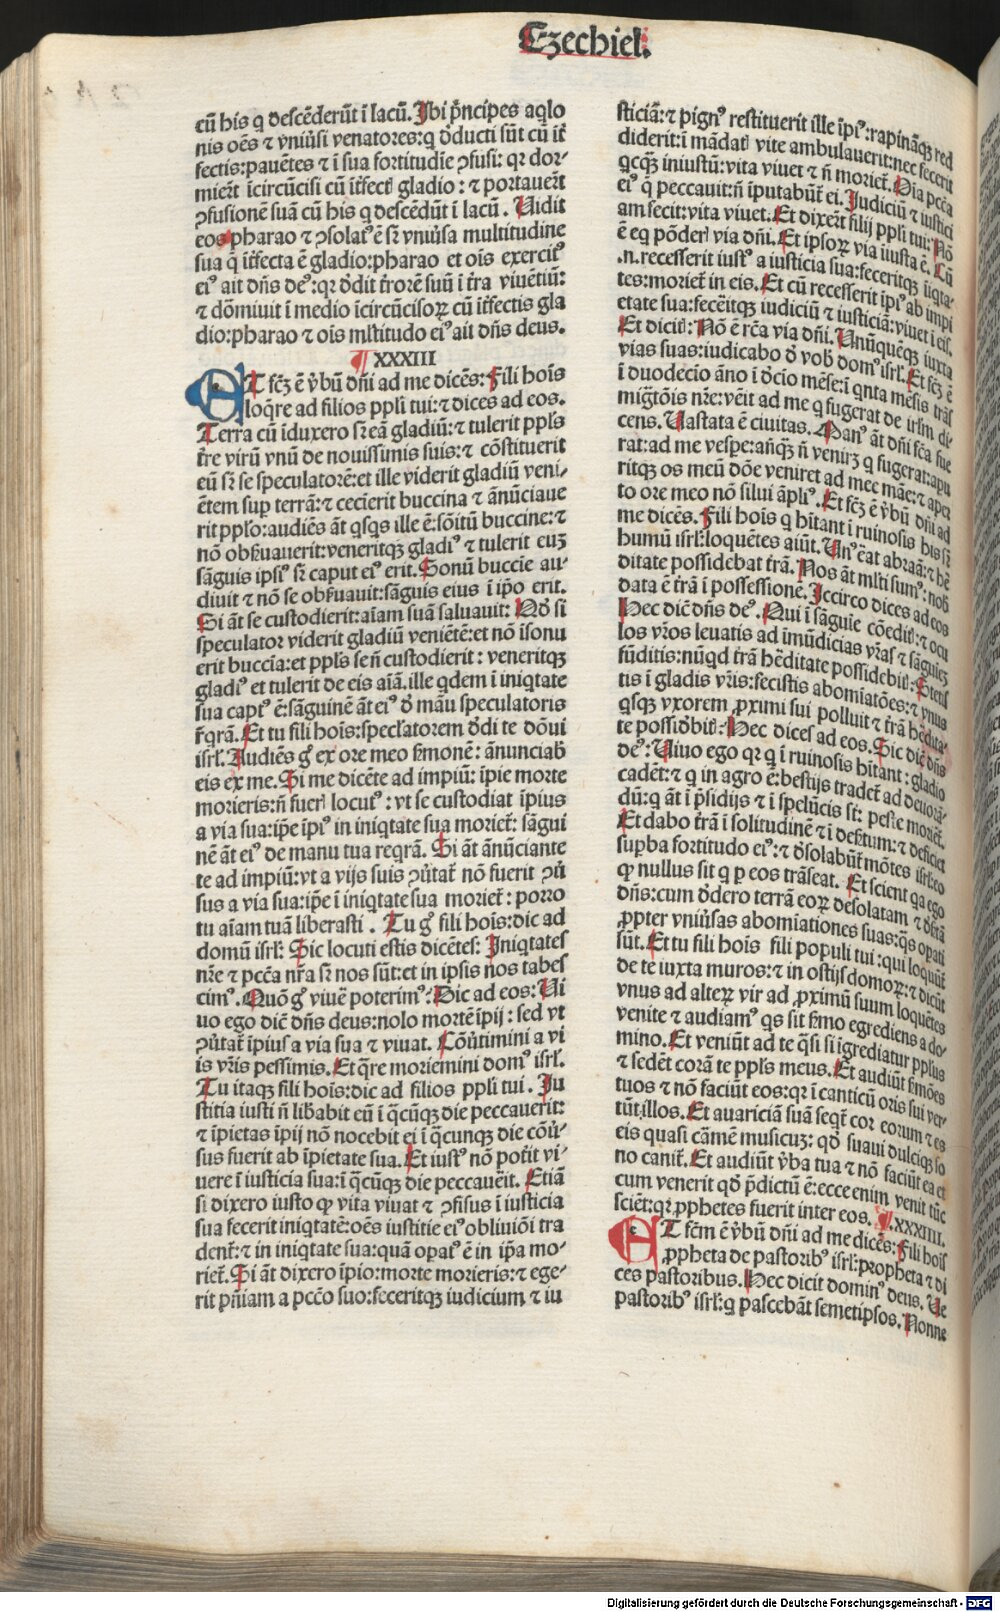 Ezechiel.
cū his q descēderūt ī lacū. Ibi p̄ncipes aq̇lo
nis oēs ⁊ vniu̇si venatores:q ꝺducti sūt cū īt̄
fectis:pauētes ⁊ ī sua fortitudīe ꝯfusi: qꝛ dor⸗
mier̄t īcircūcisi cū īt̄fect᷒ gladio: ⁊ portauer̄t
ꝯfusionē suā cū his q descēdūt ī lacū. Uidit
eos pharao ⁊ ꝯsolatꝰ ē sꝛ vniu̇sa multitudine
sua q̄ īt̄fecta ē gladio:pharao et oīs exercitꝰ
eiꝰ ait dn̄s deꝰ:qꝛ ꝺdit t̄rorē suū ī t̄ra viuētiū:
⁊ dōmiuit ī medio īcircūcisoꝝ cū īt̄fectis gla
dio:pharao ⁊ oīs ml̄titudo eiꝰ ait dn̄s deus.
¶ XXXIII
ET fcꝫ ē v̇bū dn̄i ad me dicēs: Fili hoīs
loq̄re ad filios ppl̄i tui: ⁊ dices ad eos.
Terra cū īduxero sꝛ eā gladiū: ⁊ tulerit ppl̄s
t̄re virū vnū de nouissimis suis: ⁊ cōstituerit
eū sꝛ se speculatorē:et ille viderit gladiū veni⸗
ētem sup terrā: ⁊ cecierit buccina ⁊ ānūciaue
rit ppl̄o:audiēs āt qſqs ille ē:sōitū buccine: ⁊
nō obẜuauerit:veneritqꝫ gladiꝰ ⁊ tulerit euꝫ
sāguis ipsiꝰ sꝛ caput eiꝰ erit. Sonū buccie au⸗
diuit ⁊ nō se obẜuauit:sāguis eius ī ip̄o erit.
Si āt se custodierit:aīam suā saluauit: Qꝺ si
speculator viderit gladiū veniētē:et nō īsonu
erit buccīa:et ppl̄s se n̄ custodierit: veneritqꝫ
gladiꝰ et tulerit de eis aīā.ille qdem ī iniqtate
sua captꝰ ē:sāguinē āt eiꝰ ꝺ māu speculatoris
r̄qrā. Et tu fili hoīs:specl̄atorem ꝺdi te dōui
isrl̄. Audiēs gͦ ex ore meo ẜmonē: ānunciab̄
eis ex me. Si me dicēte ad impiū: īpie morte
morieris:n̄ fuer᷒ locutꝰ: vt se custodiat īpius
a via sua:ip̄e īpiꝰ in iniqtate sua moriet̄: sāgui
nē āt eiꝰ de manu tua reqrā. Si āt ānūciante
te ad impiū:vt a vijs suis ꝯu̇tat̄ nō fuerit ꝯu̇
sus a via sua:ip̄e ī iniqtate sua moriet̄: porro
tu aīam tuā liberasti. Tu gͦ fili hoīs:dic ad
domū isrl̄: Sic locuti estis dicētes: Iniqtates
nr̄e ⁊ pccā nr̄a sꝛ nos sūt:et in ipsis nos tabes
cimꝰ. Quō gͦ viuē poterimꝰ: Dic ad eos: Ui
uo ego dic̄ dn̄s deus:nolo mortē īpij: sed vt
ꝯu̇tat̄ īpius a via sua ⁊ viuat. Cōu̇timini a vi
is vr̄is pessimis. Et q̄re moriemini domꝰ isrl̄.
Tu itaqꝫ fili hoīs:dic ad filios ppl̄i tui. Iu
stitia iusti n̄ lib̄abit eū ī q̄cūqꝫ die peccauerit:
⁊ īpietas īpij nō nocebit ei ī q̄cunqꝫ die cōu̇⸗
sus fuerit ab īpietate sua. Et iustꝰ nō pot̄it vi⸗
uere ī iusticia sua:ī q̄cūqꝫ die peccaue̊it. Etiā
si dixero iusto ꝙ vita viuat ⁊ ꝯfisus ī iusticia
sua fecerit iniqtatē:oēs iustitie eiꝰ obliuiōi tra
dent̄: ⁊ in iniqtate sua:quā opatꝰ ē in ip̄a mo⸗
riet̄. Si āt dixero īpio:morte morieris: ⁊ ege⸗
rit pn̄iam a pccō suo:feceritqꝫ iudicium ⁊ iu
sticiā: ⁊ pignꝰ restituerit ille īpiꝰ:rapināqꝫ red
diderit:ī mādat᷒ vite ambulauerit:nec fecerit
qcqꝫ iniustū:vita viuet ⁊ n̄ moriet̄. Oīa pccā
eiꝰ q̄ peccauit:n̄ īputabūt̄ ei. Iudiciū ⁊ iustici
am fecit:vita viuet. Et dixer̄t filij ppl̄i tui: Nō
ē eq pōder᷒ via dn̄i. Et ipsoꝝ via iiusta ē. Cū
.n. recesserit iustꝰ a iusticia sua:feceritqꝫ īiqta⸗
tes:moriet̄ in eis. Et cū recesserit īpiꝰ ab impi
etate sua:fece̊itqꝫ iudiciū ⁊ iusticiā:viuet ī eis.
Et dicit᷒: Nō ē rc̄a via dn̄i. Unūquēqꝫ iuxta
vias suas:iudicabo ꝺ vob̄ domꝰ isrl̄. Et fcꝫ ē
ī duodecīo āno ī ꝺcīo mēse:ī qnta mēsis trās
migtōis nr̄e:vēit ad me q fugerat de irlm̄ di⸗
cens. Uastata ē ciuitas. Manꝰ āt dn̄i fc̄a fue
rat:ad me vespe:an̄qꝫ n̄ venirꝫ q fugerat:apu
ritqꝫ os meū dōe veniret ad me māe: ⁊ apeꝛ
to ore meo nō silui āpliꝰ. Et fcꝫ ē v̇bū dn̄i ad
me dicēs. Fili hoīs q hītant ī ruinosis his sꝛ
humū isrl̄:loquētes aiūt. Unꝰ e̊at abraā: ⁊ he̊
ditate possidebat t̄rā. Nos āt ml̄ti sumꝰ: nob̄
data ē t̄rā ī possessione. Iccirco dices ad eos
Hec dic̄ dn̄s deꝰ. Qui ī sāguīe cōedit᷒: ⁊ ocu
los vr̄os leuatis ad īmūdicias vr̄as ⁊ sāguieꝫ
fūditis:nūqd t̄rā he̊ditate possidebit᷒: Stetis
tis ī gladis vr̄is:fecistis abomiatōes: ⁊ vnus
qſqꝫ vxorem ꝓximi sui polluit ⁊ t̄rā he̊dita⸗
te possidebit᷒: Hec dices ad eos. Sic dic̄ dn̄s
deꝰ: Uiuo ego qꝛ q ī ruinosis hītant: gladio
cadēt: ⁊ q in agro ē:bestijs tradet̄ ad deuorā⸗
dū:q āt ī p̄sidijs ⁊ ī spelūcis st̄: peste moriet̄.
Et dabo t̄rā ī solitudinē ⁊ ī deẜtum: ⁊ deficiet
supba fortitudo eiꝰ: ⁊ ꝺsolabūt̄ mōtes isrl̄:eo
ꝙ nullus sit q p eos trāseat. Et scient qa ego
dn̄s:cum ꝺdero terrā eoꝝ desolatam ⁊ ꝺẜtā
ꝓpter vniu̇sas abomiationes suas:q̄s opati
sūt. Et tu fili hoīs fili populi tui: qui loquūt̄
de te iuxta muros: ⁊ in ostijs domoꝝ: ⁊ dicūt
vnus ad alteꝝ vir ad ꝓximū suum loquētes
venite ⁊ audiamꝰ qs sit ẜmo egrediens a do⸗
mino. Et veniūt ad te q̄si si īgrediatur ppl̄us
⁊ sedēt corā te ppl̄s meus. Et audiūt ẜmōes
tuos ⁊ nō faciūt eos:qꝛ ī canticū oris sui ver⸗
tūt:illos. Et auariciā suā seqt̄ cor eorum ⁊ es
eis quasi cāmē musicuꝫ: qꝺ suaui dulciqꝫ so
no canit̄. Et audiūt v̇ba tua ⁊ nō faciūt ea et
cum venerit qꝺ p̄dictū ē:ecce enim venit tūc
sciēt:qꝛ ꝓphetes fuerit inter eos. ¶ XXXIIII.
ET fcm̄ ē v̇bū dn̄i ad me dicēs: Fili hoīs
ꝓpheta de pastoribꝰ isrl̄:propheta ⁊ di
ces pastoribus. Hec dicit dominꝰ deus. Ue
pastoribꝰ isrl̄:q pascebāt semetipsos. Nonne
Digitalisierung gefördert durch die Deutsche Forschungsgemeinschaft - DFG